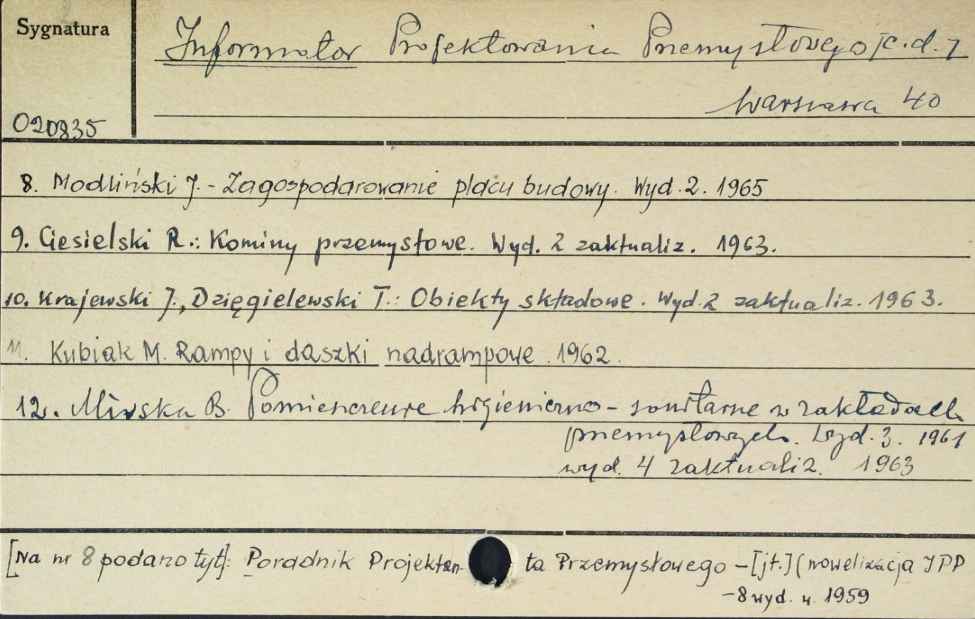 Sygnatura
Informator Projektowania Przemysłowego [c.d.]
Warszawa 40
020835
8. Modliński J. - Zagospodarowanie placu budowy. Wyd. 2. 1965
9. Ciesielski R.: Kominy przemysłowe. Wyd. 2 zaktualiz. 1963.
10. Krajewski J., Dzięgielewski T.: Obiekty składowe. Wyd. 2 zaktualiz. 1963.
11. Kubiak M. Rampy i daszki nadrampowe. 1962.
12. Mirska B. Pomieszczenia higieniczno-sanitarne w zakładach
przemysłowych. Wyd. 3. 1961
wyd. 4 zaktualiz. 1963
[Na nr 8 podano tyt]: Poradnik Projektan ta Przemysłowego - [jt.] (nowelizacja IPP
- 8 wyd. 1959